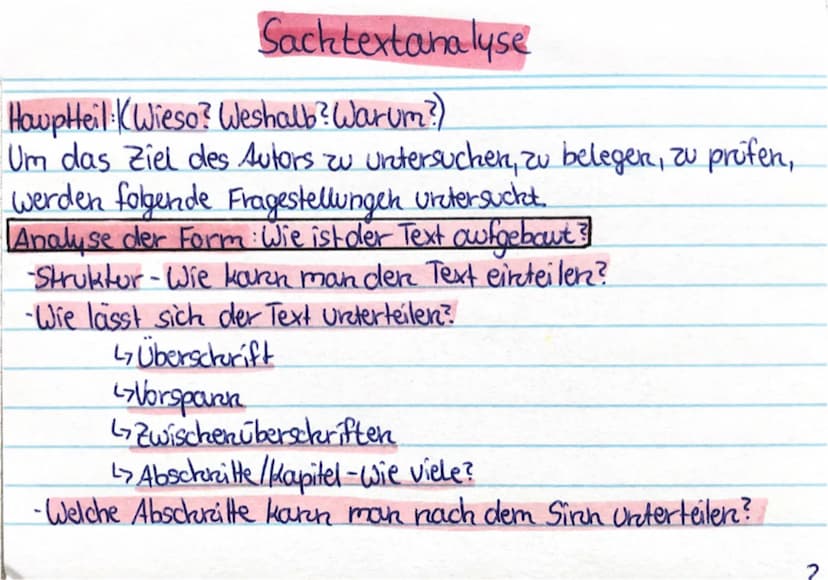 Sachtextanalyse
Hauptteil: (Wieso? Weshalb? Warum?)
Um das Ziel des Autors zu untersuchen, zu belegen, zu prüfen,
werden folgende Fragestellungen untersucht.
Analyse der Form: Wie ist der Text aufgebaut?
- Struktur - Wie kann man den Text einteilen?
- Wie lässt sich der Text unterteilen?
↳ Überschrift
↳ Vorspann
↳ Zwischenüberschriften
↳ Abschnitte/Kapitel - Wie viele?
- Welche Abschnitte kann man nach dem Sinn unterteilen?
2